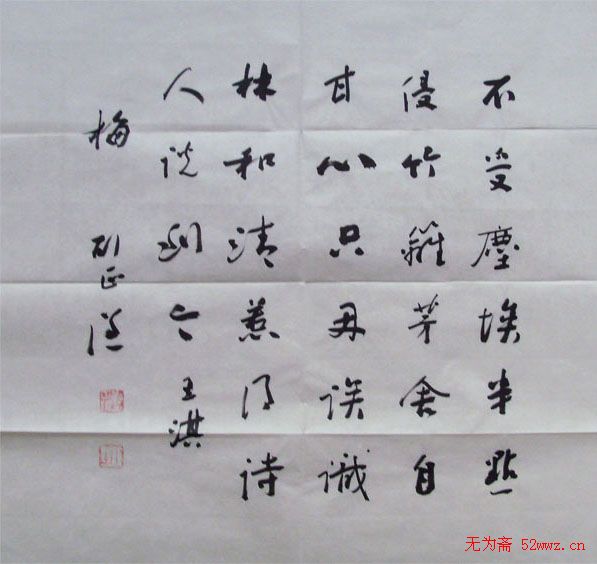 不受塵埃半點
侵竹籬茅舍自
甘心只因誤識
林和清惹得詩
人說到今 王淇
梅
无为斋 52wwz.cn